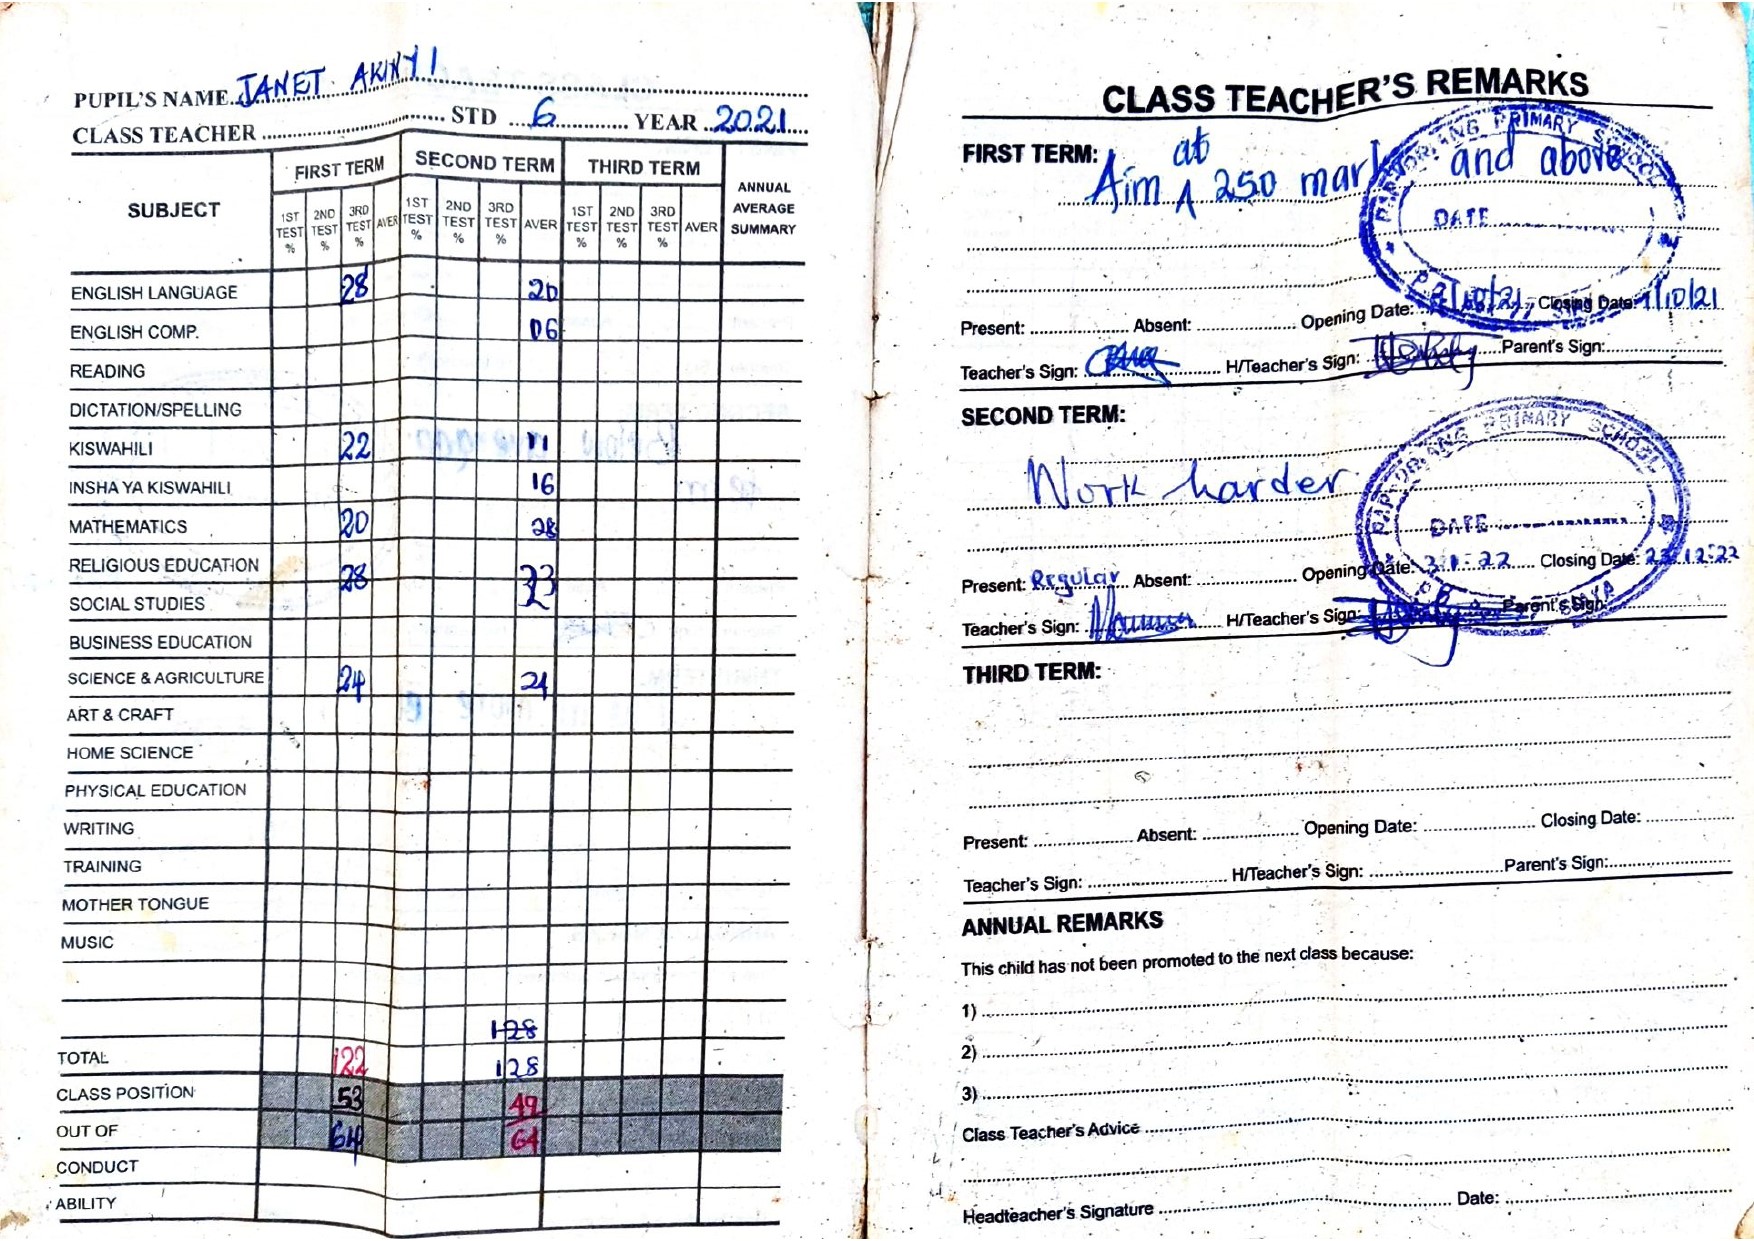 PUPIL'S NAME JANET AKINYI
CLASS TEACHER STD 6 YEAR 2021
SUBJECT FIRST TERM SECOND TERM THIRD TERM ANNUAL AVERAGE SUMMARY
1ST TEST % 2ND TEST % 3RD TEST % AVER 1ST TEST % 2ND TEST % 3RD TEST % AVER 1ST TEST % 2ND TEST % 3RD TEST % AVER
ENGLISH LANGUAGE 28 20
ENGLISH COMP. 06
READING
DICTATION/SPELLING
KISWAHILI 22 11
INSHA YA KISWAHILI 16
MATHEMATICS 20 28
RELIGIOUS EDUCATION 28
SOCIAL STUDIES
BUSINESS EDUCATION
SCIENCE & AGRICULTURE 24 24
ART & CRAFT
HOME SCIENCE
PHYSICAL EDUCATION
WRITING
TRAINING
MOTHER TONGUE
MUSIC
128
TOTAL 122 128
CLASS POSITION 53 49
OUT OF 64 64
CONDUCT
ABILITY
CLASS TEACHER'S REMARKS
FIRST TERM: Aim at 250 mark and above
PRIMARY SCHOOL
DATE
Present: Absent: Opening Date: /10/21 Closing Date: 1/10/21
Teacher's Sign: H/Teacher's Sign: Parent's Sign:
SECOND TERM:
Work harder
PRIMARY SCHOOL
DATE
Present: Regular Absent: Opening Date: 3.1.22 Closing Date: 23.12.22
Teacher's Sign: H/Teacher's Sign: Parent's Sign:
THIRD TERM:
Present: Absent: Opening Date: Closing Date:
Teacher's Sign: H/Teacher's Sign: Parent's Sign:
ANNUAL REMARKS
This child has not been promoted to the next class because:
1)
2)
3)
Class Teacher's Advice
Headteacher's Signature Date: